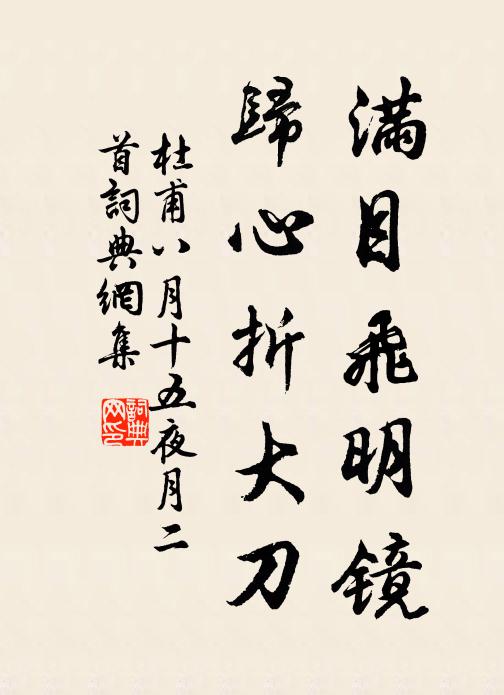 满目飛明镜
歸心折大刀
杜甫八月十五夜月二
首詞典網集
詞典
网印